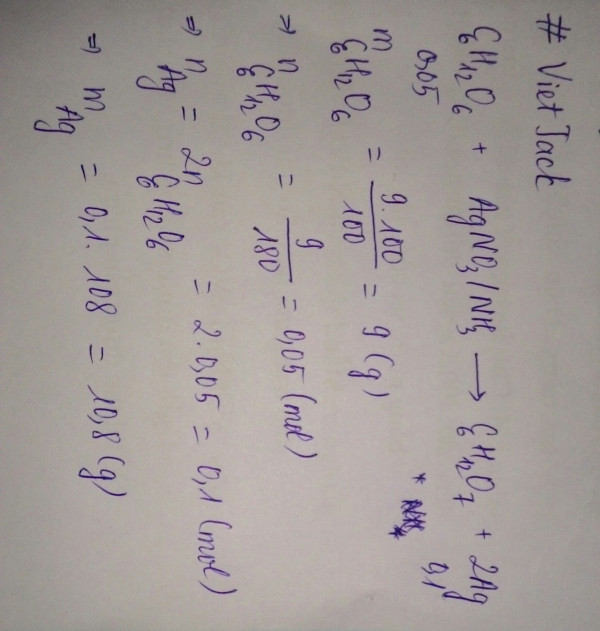 # VietJack
C6H12O6 + AgNO3/NH3 → C6H12O7 + 2Ag
0,05 0,1
mC6H12O6 = 9.100/100 = 9 (g)
→ nC6H12O6 = 9/180 = 0,05 (mol)
⇒ nAg = 2nC6H12O6 = 2.0,05 = 0,1 (mol)
⇒ mAg = 0,1.108 = 10,8 (g)